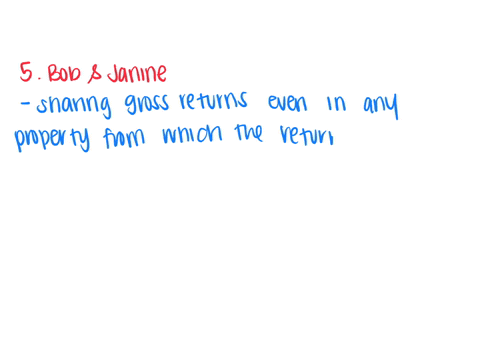 5. Bob & Janine
- sharing gross returns even in any
property from which the retur